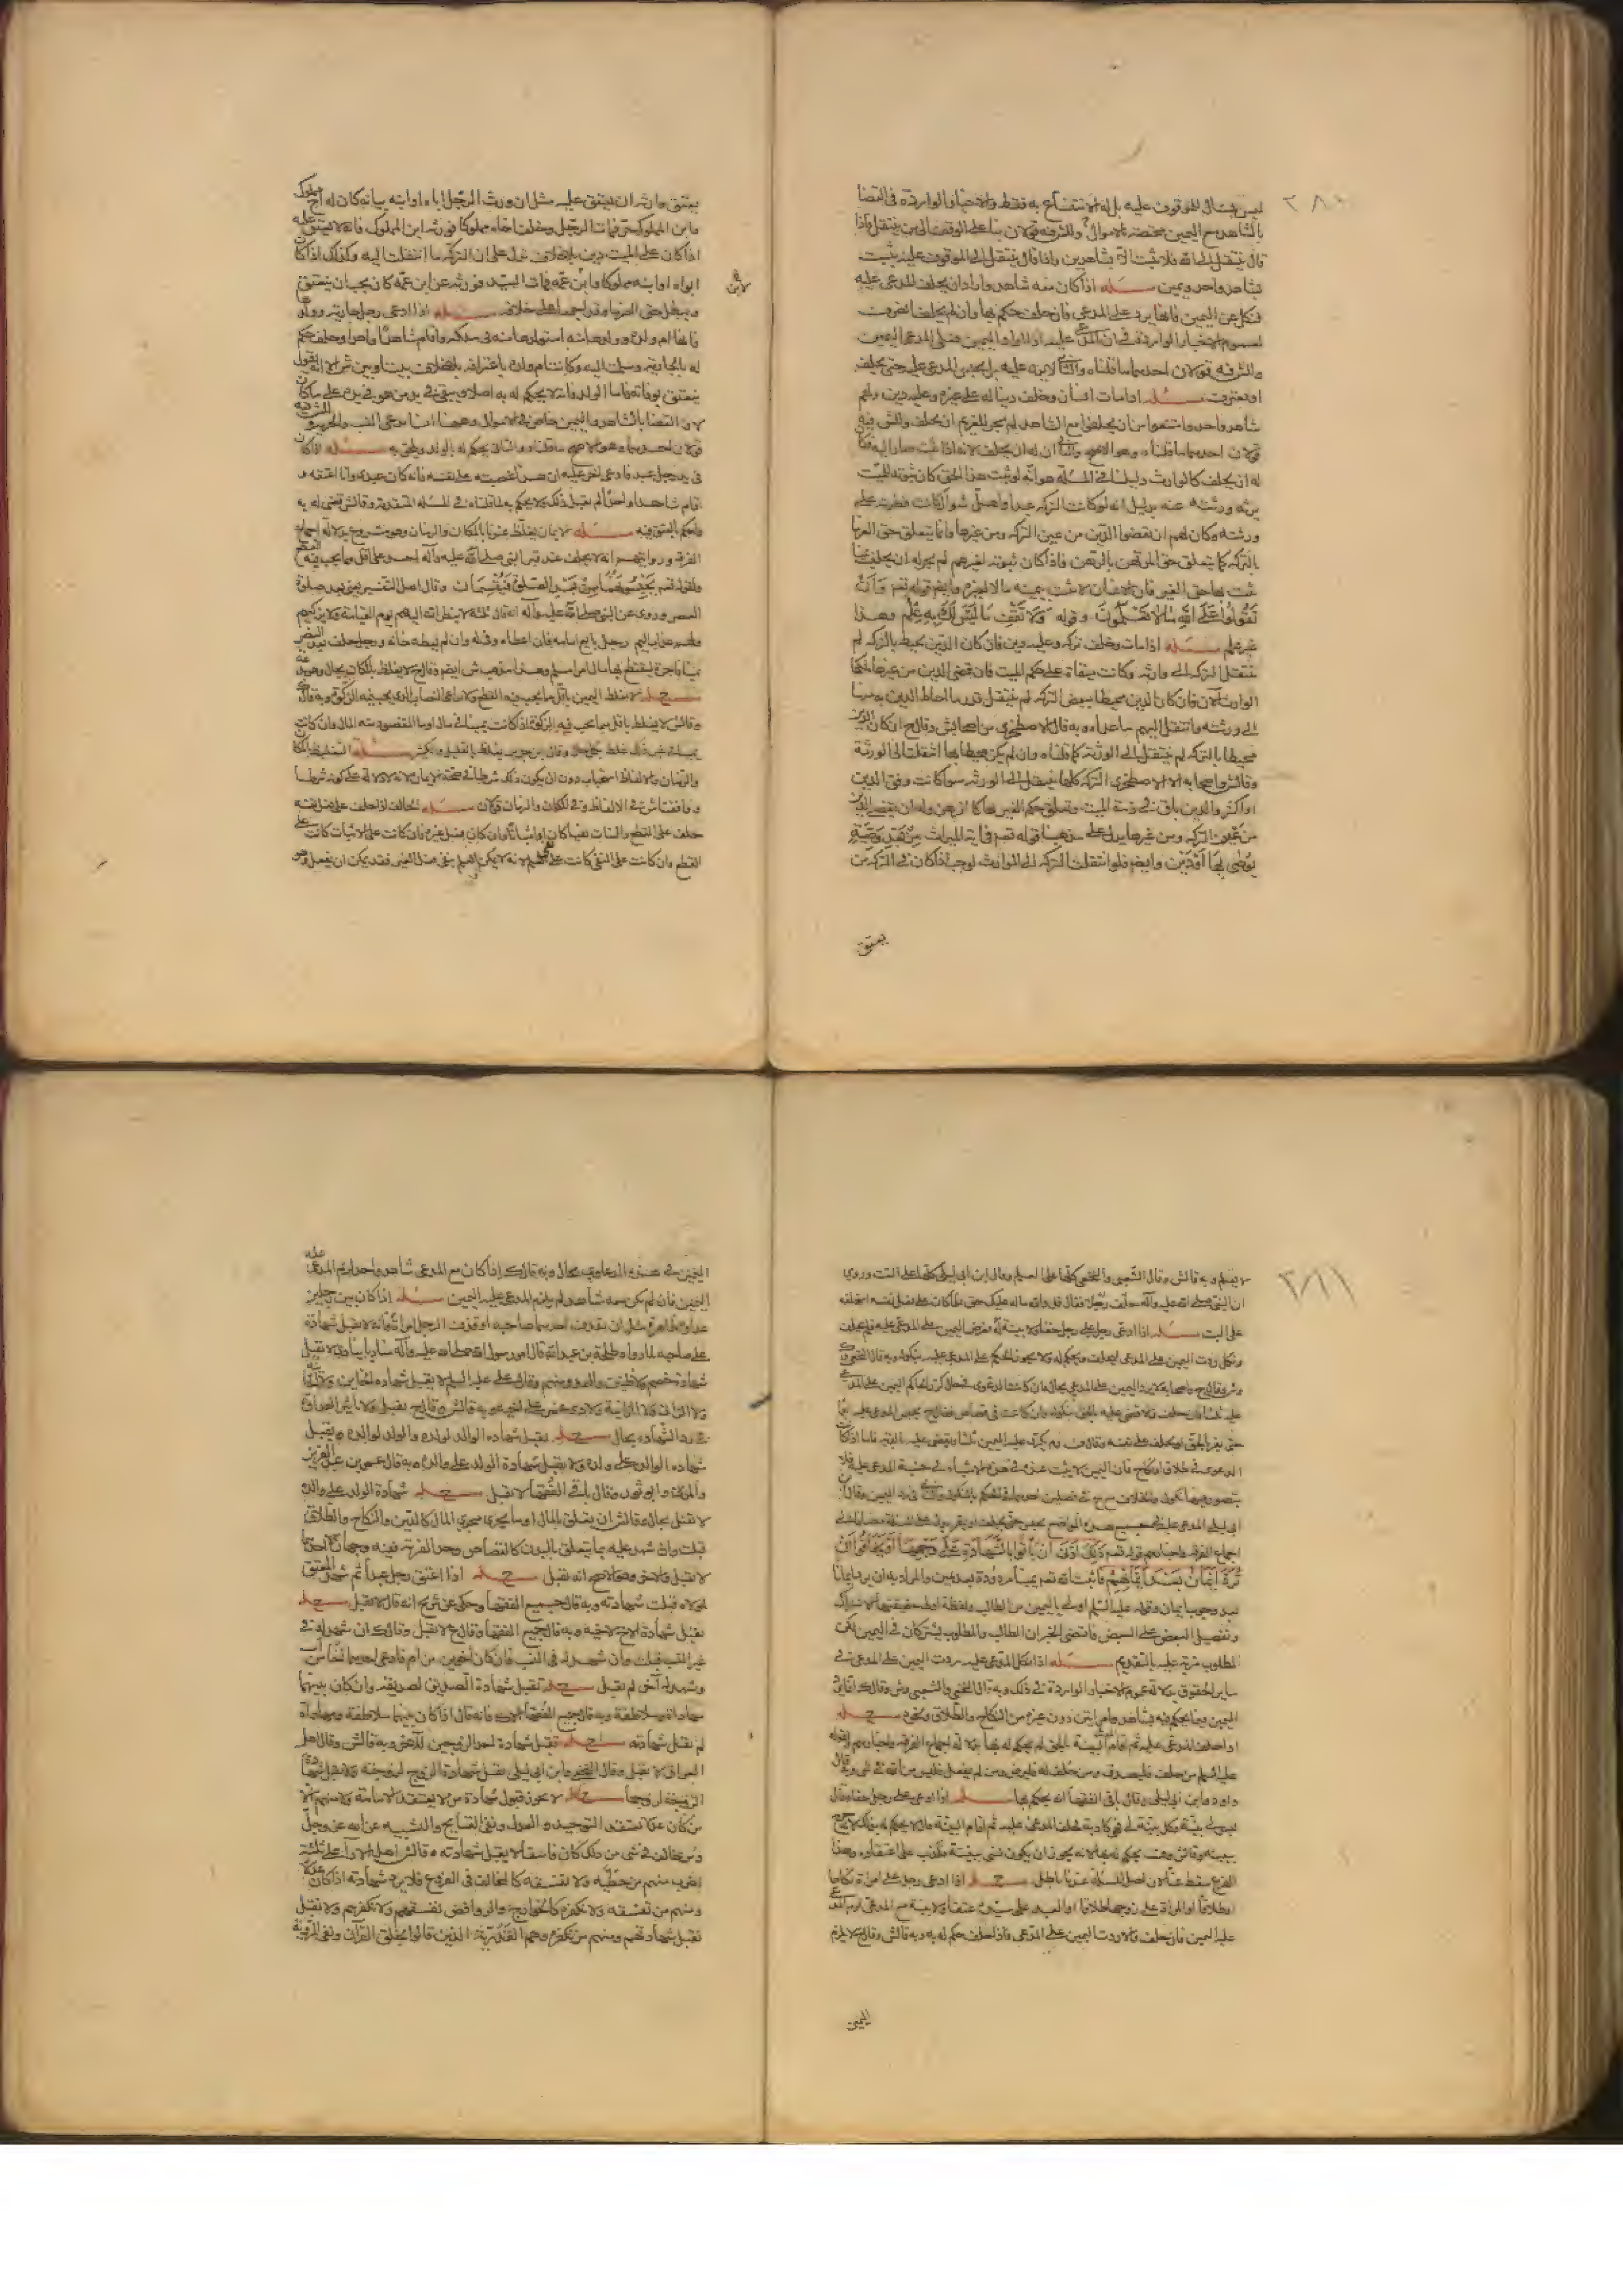 ٢٨٠
ليس بمال للموقوف عليه بل له الانتفاع به فقط والاخبار الواردة في القضا
بالشاهد مع اليمين مختصة بالاموال وللش فيه قولان بنا على الوقف الى من ينتقل فاذا
قال ينتقل الى الله فلا يثبت الا بشاهدين واذا قال ينتقل الى الموقوف عليه يثبت
بشاهد واحد ويمين مسئله اذا كان معه شاهد واراد ان يحلف المدعى عليه
فنكل عن اليمين فانها يرد على المدعي فان حلف حكم بها وان لم يحلف انصرف
لعموم الاخبار الواردة في ان المدعى عليه اذا رد اليمين فعلى المدعي اليمين
وللش فيه قولان احدهما ما قلناه والثاني لا يرد عليه بل يحبس المدعى عليه حتى يحلف
او يعترف مسئله اذا مات انسان وخلف دينا له على غيره وعليه دين ولهم
شاهد واحد وامتنعوا من ان يحلفوا مع الشاهد لم يجز للغريم ان يحلف وللش فيه
قولان احدهما ما قلناه وهو الاصح والثاني ان له ان يحلف لانه اذا ثبت صار اليه فكان
له ان يحلف كالوارث دليلنا في المسئلة هو انه لو ثبت هذا الحق كان ثبوته للميت
يرثه ورثته عنه بدليل انه لو كانت التركة عبدا واهل شوال كانت فطرته على
ورثته وكان لهم ان يقضوا الدين من عين التركة ومن غيرها وانما يتعلق حق الغرما
بالتركة كما يتعلق حق المرتهن بالرهن فاذا كان ثبوته لغيرهم لم يجز له ان يحلف
يثبت بها حق الغير فان الانسان لا يثبت بيمينه مالا لغيره وايضا قوله تعم وَاَنْ
تَقُولُوا عَلَى اللهِ مَا لَا تَعْلَمُونَ وقوله وَلَا تَقْفُ مَا لَيْسَ لَكَ بِهِ عِلْمٌ وهذا
غير علم مسئله اذا مات وخلف تركه وعليه دين فان كان الدين يحيط بالتركه لم
ينتقل التركه الى وارثه وكانت مبقاة على حكم الميت فان قضى الدين من غيرها ملكها
الوارث الان فان كان الدين محيطا ببعض التركه لم ينتقل قدر ما احاط الدين به منها
الى ورثته وانتقل اليهم ما عداه وبه قال الاصطخري من اصحاب ش وقال ح ان كان الدين
محيطا بالتركه لم ينتقل الى الورثة كما قلناه وان لم يكن محيطا بها انتقلت الى الورثة
وقال ش واصحابه الا الاصطخري التركه كلها ينتقل الى الورثه سوا كانت وفق الدين
او اكثر والدين باق في ذمة الميت وتعلق حكم الغير بها كالرهن ولهم ان يقضوا الدين
من عين التركه ومن غيرها يدل على مذهبنا قوله تعم في اية الميراث مِنْ بَعْدِ وَصِيَّةٍ
يُوصَى بِهَا اَوْ دَيْنٍ وايضا فلو انتقلت التركه الى الوارث لوجب اذا كان في التركه من
يعتق
يعتق على وارثه ان ينعتق عليه مثل ان ورث الرجل اباه او ابنه بيانه كان له اخ مملوك
وابن المملوك حر فمات الرجل وخلف اخاه مملوكا فورثه ابن المملوك فانه لا ينعتق عليه
اذا كان على الميت دين بلا خلاف فدل على ان التركه ما انتقلت اليه وكذلك اذا كان
ابواه او ابنه مملوكا وابن عمه فمات السيد فورثه عن ابن عمه كان يجب ان ينعتق
ويبطل حق الغرما وقد اجمعوا على خلافه مسئله اذا ادعى رجل جارية وولدها
فانها ام ولده وولدها منه استولدها منه في ملكه واقام شاهدا واحدا وحلف حكم
له بالجارية وسلمت اليه وكانت ام ولده باعترافه بلا خلاف بيننا وبين ش الا انه يقول
ينعتق بوفاته فاما الولد فانه لا يحكم له به اصلا ويبقى في يد من هو في يده على ما كان
لان القضا بالشاهد واليمين خاص في الاموال وههنا انما يدعى النسب والحرية وللش فيه
قولان احدهما وهو الاصح ما قلناه والثاني يحكم له بالولد ويلحق به مسئله اذا كان
في يد رجل عبد فادعى اخر عليه ان هذا غصبته على نفسه فانه كان عبدي وانا اعتقته و
اقام شاهدا واحدا لم يقبل ذلك ولا يحكم به لما قلناه في المسئله المتقدمة وقال ش نقضي له به
ونحكم بالعتق فيه مسئله الايمان يغلظ عندنا بالمكان والزمان وهو مشروع بدلالة اجماع
الفرقه وروايتهم انه لا يحلف عند قبر النبي صلى الله عليه وآله احد على اقل مما يجب فيه القطع
ولقوله تعم تَحْبِسُونَهُمَا مِنْ بَعْدِ الصَّلٰوةِ فَيُقْسِمَانِ وقال اهل التفسير يعني بعد صلوة
العصر وروي عن النبي صلى الله عليه وآله انه قال ثلثه لا ينظر الله اليهم يوم القيامة ولا يزكيهم
ولهم عذاب اليم رجل بايع امامه فان اعطاه وفى له وان لم يعطه خانه ورجل حلف بعد العصر
يمينا فاجرة ليقتطع بها مال امرء مسلم وهذا مذهب ش ايضا وقال ح لا يغلظ بالمكان بحال
مسئله لا يغلظ اليمين باقل ما يجب فيه القطع ولا يراعى النصاب الذي يجب فيه الزكوة وبه قال ك
وقال ش لا يغلظ باقل مما يجب فيه الزكوة اذا كانت يمينا في مال او ما المقصود منه المال وان كانت
يمينا في غير ذلك غلظ بكل حال وقال ابن جرير يغلظ بالقليل والكثير مسئله التغليظ بالمكان
والزمان والالفاظ استحباب دون ان يكون ذلك شرطا في صحة الايمان لانه لا دلالة على كونه شرطا
ووافقنا ش في الالفاظ وفي المكان والزمان قولان مسئله الحالف اذا حلف على فعل نفسه
حلف على القطع والبتات نفيا كان او اثباتا وان كان يفعل غيره فان كانت على الاثبات كانت على
القطع وان كانت على النفي كانت على العلم لانه لا يمكن العلم بنفي فعل الغير فقد يمكن ان يفعل وهو
٢٨١
لا يعلم وبه قال ش وقال الشعبي والنخعي كلها على العلم وقال ابن ابي ليلى كلها على البت وروي
ان النبي صلى الله عليه وآله حلف رجلا فقال قل والله ماله عليك حق فلما كان على فعل نفسه استحلفه
على البت مسئله اذا ادعى رجل على رجل حقا ولا بينة له فعرض اليمين على المدعى عليه فلم يحلف
ونكل ردت اليمين على المدعي فيحلف ويحكم له ولا يجوز الحكم على المدعى عليه بنكوله وبه قال النخعي وك
وش وقال ح واصحابه لا يرد اليمين على المدعي بحال فان كانت الدعوى في مال كرر الحاكم اليمين على المدعى
عليه ثلثا فان حلف والا قضى عليه بالحق بنكوله وان كانت في قصاص فقال ح يحبس المدعى عليه
حتى يقر بالحق او يحلف على نفيه وقال ف وم يكرر عليه اليمين ثلثا ويقضي عليه بالدية فاما اذا كانت
الدعوى في طلاق او نكاح فان اليمين لا يثبت عنده في هذه الاشياء في جنبة المدعى عليه فلا
يتصور فيها نكول والخلاف مع ح في فصلين احدهما في الحكم بالنكول والثاني في رد اليمين وقال ابن
ابي ليلى المدعى عليه في جميع هذه المواضع يحبس حتى يحلف او يقر يدل على المسئلة مضافا الى
اجماع الفرقه واخبارهم قوله تعم ذٰلِكَ اَدْنٰى اَنْ يَأْتُوا بِالشَّهَادَةِ عَلٰى وَجْهِهَا اَوْ يَخَافُوا اَنْ
تُرَدَّ اَيْمَانٌ بَعْدَ اَيْمَانِهِمْ فاثبت الله تعم يمينا مردودة بعد يمين والمراد به ان يرد ايمانا
بعد وجوب ايمان وقوله عليه السلم المطلوب اولى باليمين من الطالب ولفظة اولى حقيقتها الاشتراك
وتفضيل البعض على البعض فاقتضى الخبر ان الطالب والمطلوب يشتركان في اليمين لكن
المطلوب مزية عليه بالتقديم مسئله اذا نكل المدعى عليه ردت اليمين على المدعي في
ساير الحقوق بدلالة عموم الاخبار الواردة في ذلك وبه قال النخعي والشعبي وش وقال ك انما يرد
اليمين فيما يحكم فيه بشاهد وامراتين دون غيره من النكاح والطلاق ونحوه مسئله
اذا حلف المدعى عليه ثم اقام المدعي البينة بالحق لم يحكم له بها بدلالة اجماع الفرقه واخبارهم ولقوله
عليه السلم من حلف فليصدق ومن حلف له فليرض ومن لم يفعل فليس من الله في شئ وبه قال
داود وابن ابي ليلى وقال باقي الفقها انه يحكم بها مسئله اذا ادعى على رجل حقا وقال
ليس لي بينة وكل بينة لي فهي كاذبة فحلف المدعى عليه ثم اقام البينة فانه لا يحكم له بذلك
ببينته وقال ش وف يحكم له بها لانه يجوز ان يكون نسي بينته فكذب على اعتقاده وهذا
الفرع سقط عنا لان اصل المسئلة عندنا باطل مسئله اذا ادعى رجل على امراة نكاحا
او طلاقا او المراة على زوجها طلاقا او العبد على سيده عتقا ولا بينة مع المدعي لزم المدعى
عليه اليمين فان حلف والا ردت اليمين على المدعي فاذا حلف حكم له به وبه قال ش وقال ح لا يلزم
اليمين
اليمين في هذه الدعاوي بحال وبه قال ك اذا كان مع المدعي شاهد واحد لزم المدعى عليه
اليمين فان لم يكن معه شاهد لم يلزم المدعى عليه اليمين مسئله اذا كان بين رجلين
عداوة ظاهرة مثل ان يقذف احدهما صاحبه او قذف الرجل امراته فانه لا يقبل شهادة
على صاحبه لما رواه طلحة بن عبد الله قال امر رسول الله صلى الله عليه وآله مناديا ينادي لا تقبل
شهادة خصم ولا ظنين والعدو متهم وقال على عليه السلم لا يقبل شهادة الخاين ولا الخاينة
ولا الزاني ولا الزانية ولا ذي غمر على اخيه وبه قال ش وك وقال ح يقبل ولا تاثير للعداوة
في رد الشهادة بحال مسئله يقبل شهادة الوالد لولده والولد لوالده ويقبل
شهادة الوالد على ولده ولا يقبل شهادة الولد على والده وبه قال عمر بن عبد العزيز
والمزني وابو ثور وقال باقي الفقها لا يقبل مسئله شهادة الولد على والده
لا تقبل بحال وقال ش ان يتعلق بالمال او ما يجري مجرى المال كالدين والنكاح والطلاق
قبلت وان شهد عليه بما يتعلق بالبدن كالقصاص وحد الفرية ففيه وجهان احدهما
لا تقبل والثاني وهو الاصح انه تقبل مسئله اذا اعتق رجل عبدا ثم شهد المعتق
لمولاه قبلت شهادته وبه قال جميع الفقها وحكي عن شريح انه قال لا تقبل مسئله
تقبل شهادة الاخ لاخيه وبه قال جميع الفقها وقال ح لا تقبل وقال ك ان شهد له في
غير النسب قبلت وان شهد له في النسب فان كان اخوين من ام فادعى احدهما اخا من اب
وشهد له اخر لم تقبل مسئله تقبل شهادة الصديق لصديقه وان كان بينهما
مهاداة وملاطفة وبه قال جميع الفقها الا ك فانه قال اذا كان بينهما ملاطفة ومهاداة
لم تقبل شهادته مسئله تقبل شهادة احد الزوجين للاخر وبه قال ش وقال اهل
العراق لا تقبل وقال النخعي وابن ابي ليلى تقبل شهادة الزوج لزوجته ولا تقبل شهادة
الزوجة لزوجها مسئله لا يجوز قبول شهادة من لا يعتقد الامامة ولا منهم الا
من كان عدلا يعتقد التوحيد والعدل ونفي القبايح والتشبيه عن الله عز وجل
ومن خالف في شئ من ذلك كان فاسقا لا يقبل شهادته وقال ش اهل الاراء على ثلثة
اضرب منهم من نخطيه ولا نفسقه كالمخالف في الفروع فلا يرد شهادته اذا كان عدلا
ومنهم من نفسقه ولا نكفره كالخوارج والروافض نفسقهم ولا نكفرهم ولا نقبل
تقبل شهادتهم ومنهم من نكفره وهم القدرية الذين قالوا بخلق القرآن ونفي الروية